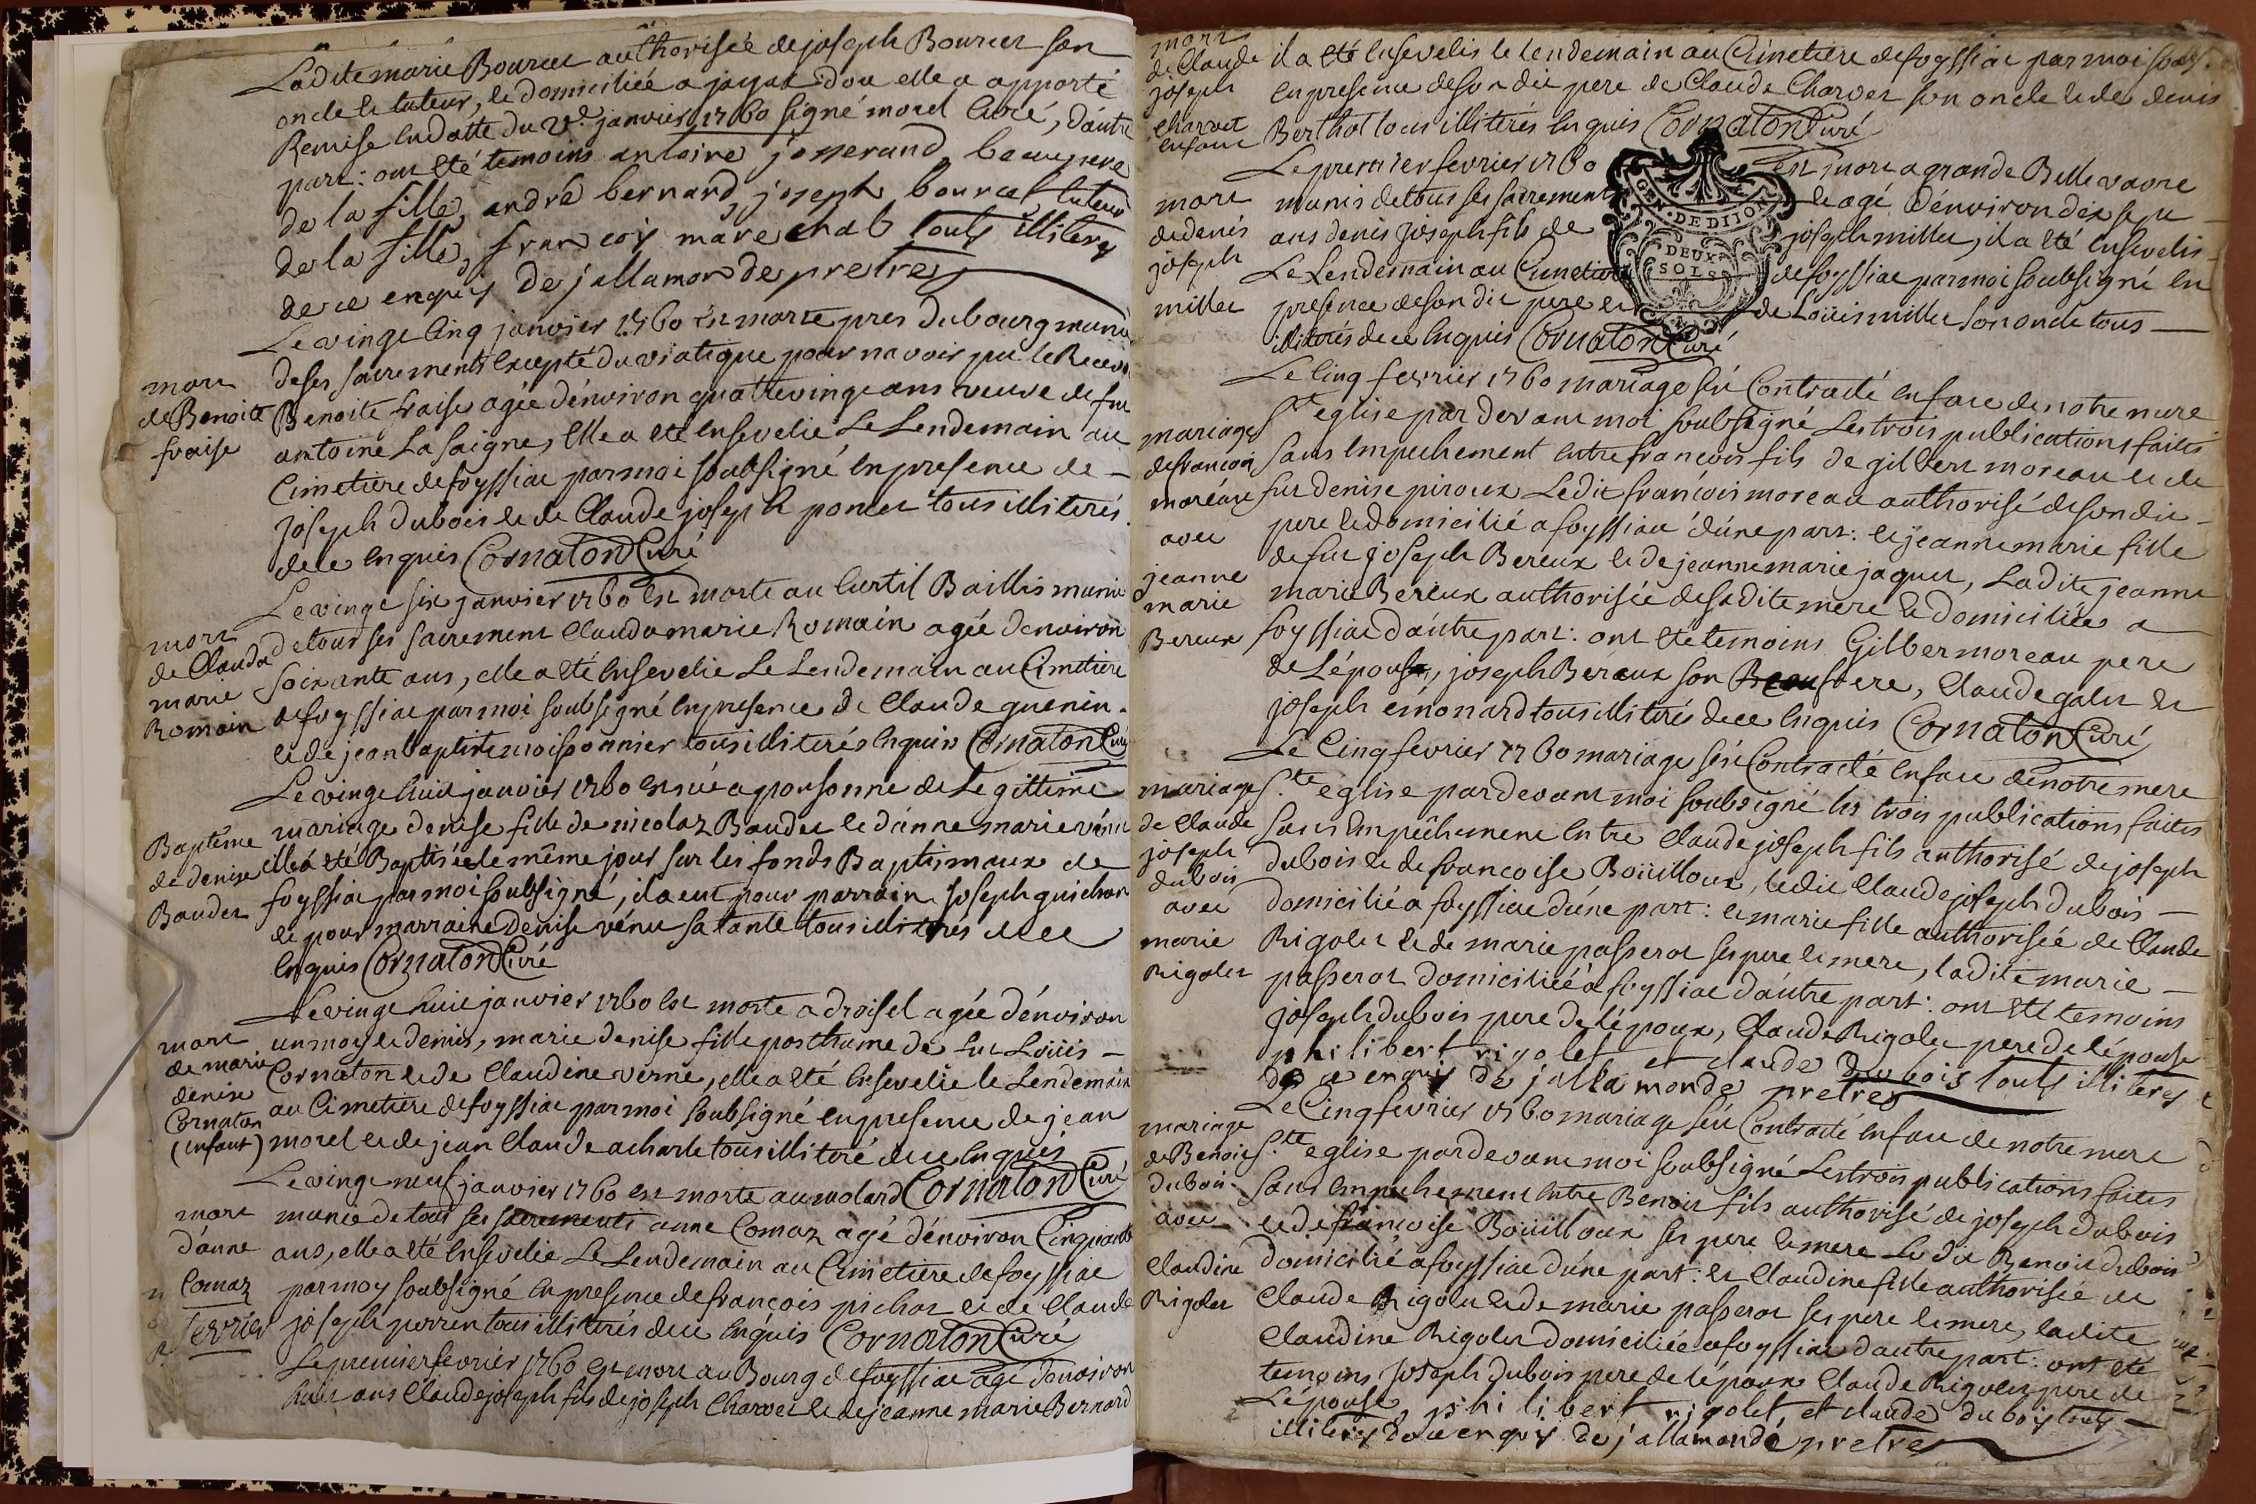 Ladite marie Bourcet authorisée de joseph Bourcet son
oncle et tuteur, et domiciliée a jayat d'ou elle a apporté
Remise en datte du 2e. janvier 1760 signé morel Curé, d'autre
part: ont été temoins antoine josserand beaupere
de la fille, andré bernard, joseph bourcet tuteur
de la fille, francois marechal touts illiterez
de ce enquis De jallamonde pretre
Le vingt Cinq janvier 1760 est morte pres du bourg munie
de ses sacrements Excepté du viatique pour navoir pu le Recevoir
mort
de Benoite
fraise
Benoite fraise agée d'environ quatre vingt ans veuve de feu
antoine La Saigne, Elle a été Ensevelie Le Lendemain au
Cimetiere de foyssiac par moi soubsigné En presence de
joseph Dubois et de Claude joseph poncet tous illiterés
de ce Enquis Cornaton Curé
Le vingt six janvier 1760 est morte au Curtil Baillis munie
mort
de Clauda
marie
Romain
de tous ses sacrement Clauda marie Romain agée d'environ
soixante ans, elle a été Ensevelie Le Lendemain au Cimetiere
de foyssiac par moi soubsigné En presence de Claude guenin
et de jean baptiste moissonnier tous illiterés Enquis Cornaton Curé
Le vingt huit janvier 1760 est née a ponsonne de Legittime
Bapteme
de denise
Baudet
mariage denise fille de nicolaz Baudet et d'anne marie vénu
elle a été Baptisée le même jour sur les fonds Baptismaux de
foyssiac par moi soubsigné, il a eut pour parrain joseph guichon
et pour marraine Denise vénu sa tante tous illiterés de ce
Enquis Cornaton Curé
Le vingt huit janvier 1760 est morte a droisel agée d'environ
mort
de marie
denise
Cornaton
(Enfant)
un moy et demis, marie denise fille posthume de feu Loüis
Cornaton et de Claudine verne, elle a été Ensevelie le Lendemain
au Cimetiere de foyssiac par moi soubsigné en presence de jean
morel et de jean Claude acharle tous illiteré de ce Enquis
Le vingt neuf janvier 1760 est morte au molard Cornaton Curé
mort
d'anne
Comaz
munie de tous ses sacrements anne Comaz agé d'environ Cinquante
ans, elle a été Ensevelie Le Lendemain au Cimetiere de foyssiac
par moy soubsigné En presence de françois pichoz et de Claude
joseph perren tous illiterés de ce Enquis Cornaton Curé
fevrier
Le premier fevrier 1760 est mort au Bourg de foyssiac agé d'environ
huit ans Claude joseph fils de joseph Charvet et de jeanne marie Bernard
mort
de Claude
joseph
Charvet
enfant
il a été Ensevelis le lendemain au Cimetiere de foyssiac par moi soub.
en presence de son dit pere de Claude Charvet son oncle et de denis
Berthot tous illiterés Enquis Cornaton Curé
GEN. DE DIJON
DEUX
SOLS
Le premier fevrier 1760 est mort a grande Bellevavre
mort
de denis
joseph
millet
munis de tous ses sacrement et agé d'environ dix sept
ans denis joseph fils de joseph millet, il a été Ensevelis
Le Lendemain au Cimetiere de foyssiac par moi soubsigné En
presence de son dit pere et de Loüis millet son oncle tous
illiterés de ce Enquis Cornaton Curé
Le Cinq fevrier 1760 mariage feû Contracté En face de notre mere
mariage
de francois
moréau
avec
jeanne
marie
Bereux
Ste eglise par devant moi soubsigné Les trois publications faites
sans Empechement Entre francois fils de gilbert moreau et de
feu denise piroux Ledit françois moreau authorisé de son dit
pere et domicilié a foyssiac d'une part: et jeanne marie fille
de feu joseph Bereux et de jeanne marie jaquet, Ladite jeanne
marie Bereux authorisée de sa dite mere et domiciliée a
foyssiac d'autre part: ont été temoins Gilber moreau pere
de L'épouse, joseph Béreux son frere, Claude galet et
joseph émonard tous illiterés de ce Enquis Cornaton Curé
Le Cinq fevrier 1760 mariage feû Contracté En face de notre mere
mariage
de Claude
joseph
dubois
avec
marie
Rigolet
Ste eglise par devant moi soubsigné les trois publications faites
sans Empêchement Entre Claude joseph fils authorisé de joseph
dubois et de francoise Boüilloux, ledit Claude joseph dubois
domicilié a foyssiac d'une part: et marie fille authorisée de Claude
Rigolet et de marie passerot ses pere et mere, ladite marie
passerot domiciliée a foyssiac d'autre part: ont été temoins
joseph dubois pere de l'époux, Claude Rigolet pere de l'épouse
philibert rigolet et claude Dubois touts illiterez
de ce enquis De jallamonde pretre
Le Cinq fevrier 1760 mariage feû Contracté En face de notre mere
mariage
de Benoit
dubois
avec
Claudine
Rigolet
Ste eglise par devant moi soubsigné Les trois publications faites
sans Empechement Entre Benoit fils authorisé de joseph dubois
et de francoise Boüilloux ses pere et mere Le dit Benoit dubois
domicilié a foyssiac d'une part: et Claudine fille authorisée de
Claude Rigolet et de marie passerot ses pere et mere, ladite
Claudine Rigolet domiciliée a foyssiac d'autre part: ont été
temoins joseph dubois pere de l'époux Claude Rigolet pere de
L'épouse, philibert rigolet, et claude dubois touts
illiterez de ce enquis De jallamonde pretre